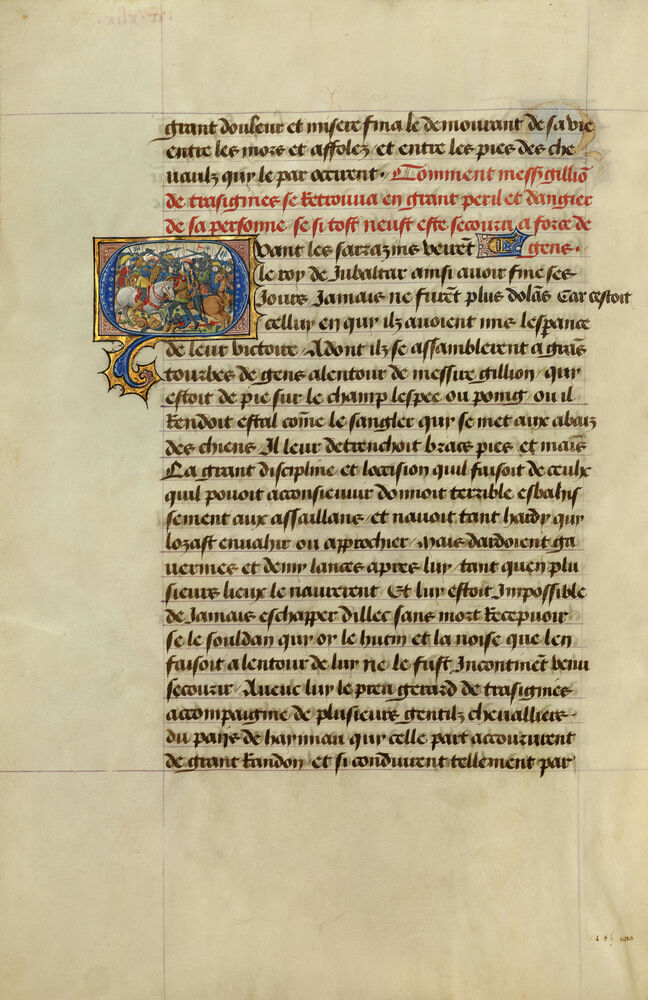 grant douleur et misere fina le demourant de sa vie
entre les mors et affolez et entre les pies des che
uaulx quy le par occirent. Comment mess gilliõ
de trasignies se Retrouua en grant peril et dangier
de sa personne se si tost neust este secouru a force de
Quant les sarrazins veirẽt gens.
le roy de Jubaltar ainsi auoir fine ses
Jours Jamais ne furẽt plus dolãs Car cestoit
celluy en quy ilz auoient mis lespance
de leur victoire Adont ilz se assamblerent a grãs
tourbes de gens alentour de messire gillion quy
estoit de pie sur le champ lespee ou poing ou il
Rendoit estal cõme le sanglier quy se met aux abaiz
des chiens Il leur detrenchoit bracs pies et mais
La grant discipline et loccision quil faisoit de ceulx
quil pouoit aconsieuuir donnoit terrible esbahis
sement aux assaillans et nauoit tant hardy quy
lozast enuahir ou approchier Mais dardoient ga
uermes et demy lances apres luy tant quen plu
sieurs lieux le naurerent Et luy estoit Impossible
de Jamais eschapper dillec sans mort Recepuoir
se le souldan quy or le hutin et la noise que len
faisoit alentour de luy ne le fust Incontinẽt venu
secourir Auecc luy le preu gerard de trasignies
acompaignie de plusieurs gentilz cheualliers
du pays de haynnau quy celle part acoururent
de grant Randon et si conduirent tellement par